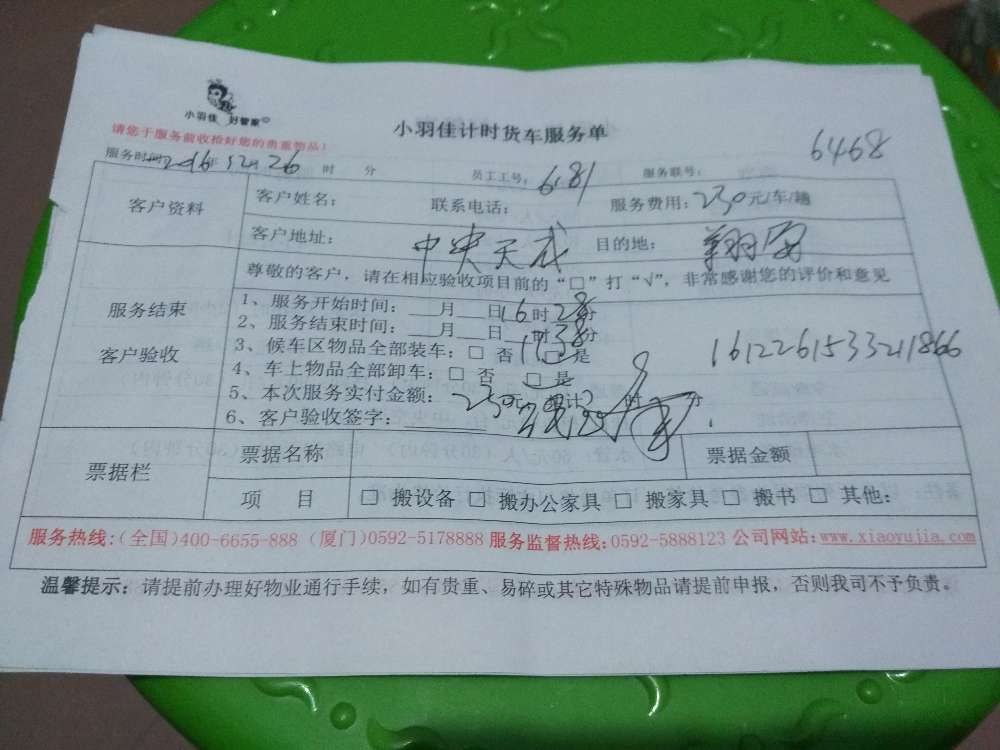 小羽佳 好管家
小羽佳计时货车服务单
请您于服务前收检好您的贵重物品!
6468
服务时间: 2016年12月26 时 分 员工工号: 6181 服务联号:
客户资料 客户姓名: 联系电话: 服务费用: 230元/车/趟
客户地址: 中央天成 目的地: 翔安
服务结束
客户验收
尊敬的客户,请在相应验收项目前的“□”打“√”,非常感谢您的评价和意见
1、服务开始时间: ___月___日16时28分
2、服务结束时间: ___月___日17时38分
3、候车区物品全部装车:□ 否 □ 是
1612261533211866
4、车上物品全部卸车:□ 否 □ 是
5、本次服务实付金额: 230元 时 分
6、客户验收签字:
票据栏 票据名称 票据金额
项 目 □ 搬设备 □ 搬办公家具 □ 搬家具 □ 搬书 □ 其他:
服务热线:(全国)400-6655-888 (厦门)0592-5178888 服务监督热线:0592-5888123 公司网站:www.xiaoyujia.com
温馨提示:请提前办理好物业通行手续,如有贵重、易碎或其它特殊物品请提前申报,否则我司不予负责。